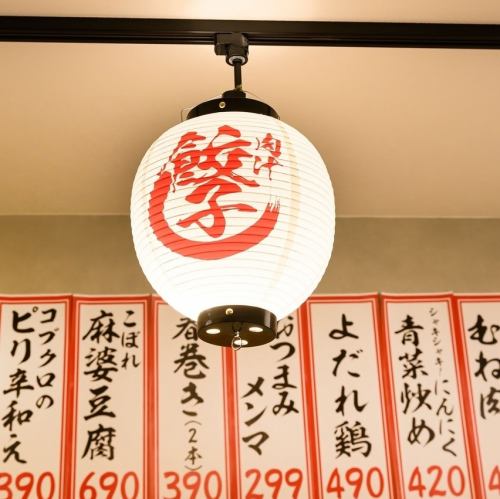 肉汁
餃子
コブクロの
ピリ辛和え
390
こぼれ
麻婆豆腐
690
春巻き(2本)
390
おつまみ
メンマ
299
よだれ鶏
490
シャキシャキ!にんにく
青菜炒め
420
むね肉